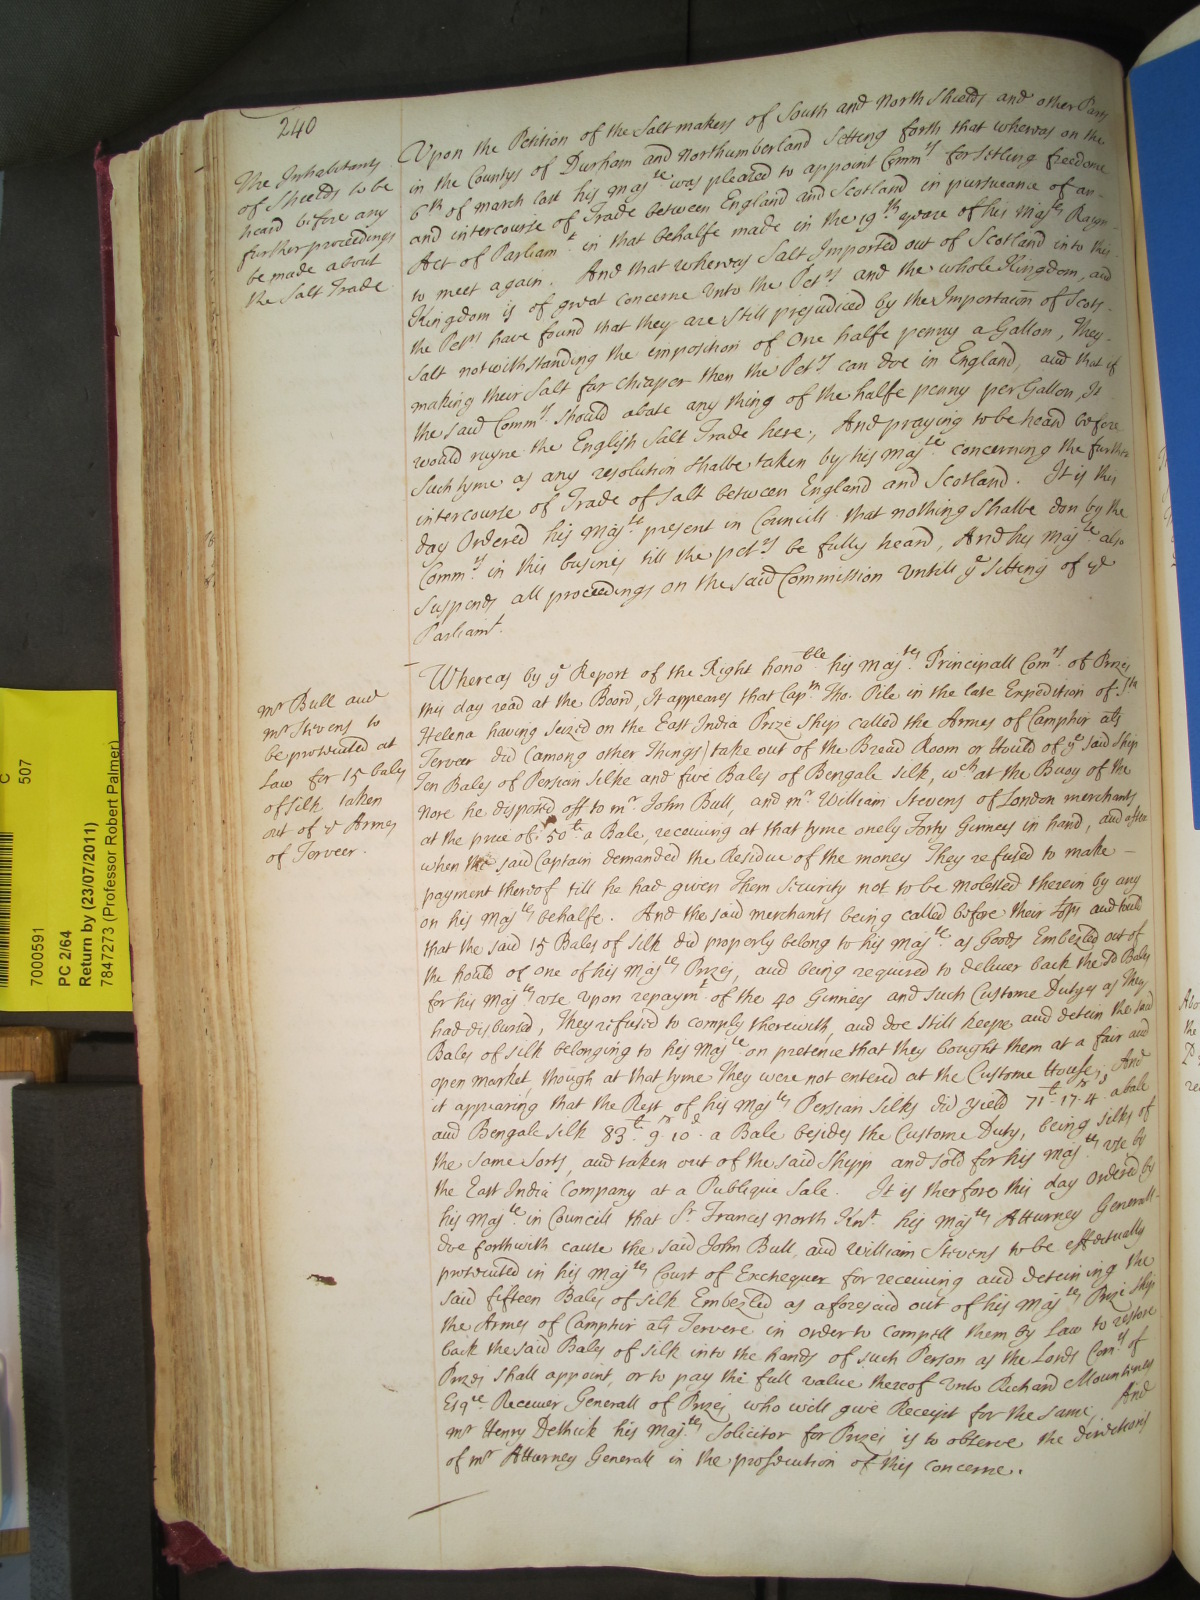 240
The Inhabitants
of Shields to be
heard before any
further proceedings
be made about
the Salt Trade
Upon the Petition of the Saltmakers of South and North Shields and other Parts
in the Countys of Durham and Northumberland Setting forth that whereas on the
6th of March last his Majte was pleased to appoint Commrs for setling freedome
and intercourse of Trade between England and Scotland in pursueance of an
Act of Parliamt in that behalfe made in the 19th yeare of his Majtes Raign
to meet again. And that whereas Salt Imported out of Scotland into this
Kingdom is of great concerne unto the Petrs and the whole Kingdom, and
the Petrs have found that they are still prejudiced by the Importacon of Scots
Salt notwithstanding the imposition of One halfe penny a Gallon, They
making their Salt far cheaper then the Petrs can doe in England, and that if
the said Commrs should abate any thing of the halfe penny per Gallon, It
would ruyne the English Salt Trade here; And praying to be heard before
Such tyme as any resolution shalbe taken by his Majte concerning the further
intercourse of Trade of Salt between England and Scotland. It is this
day Ordered his Majte present in Councill that nothing Shalbe don by the
Commrs in this busines till the petrs be fully heard, And his Majte also
Suspends all proceedings on the said Commission untill ye sitting of ye
Parliamt.
Mr Bull and
Mr Stevens to
be prosecuted at
Law for 15 bales
of silk taken
out of ye Armes
of Terveer.
Whereas by ye Report of the Right honoble his Majtes Principall Comrs of Prizes
this day read at the Board, It appeares that Captn Tho. Pile in the late Expedition of St
Helena having seized on the East India Prize Ship called the Armes of Camphir als
Terveer did (among other Things) take out of the Bread Room or Hould of ye said Ship
Ten Bales of Persian Silke and five Bales of Bengale silk, wch at the Buoy of the
Nore he disposed off to Mr John Bull, and Mr William Stevens of London merchants
at the price of 50 £ a Bale, receiving at that tyme onely Forty Ginneys in hand, and after
when the said Captain demanded the Residue of the money They refused to make
payment thereof till he had given Them Security not to be molested therein by any
on his Majtes behalfe. And the said merchants being called before their Lopps and tould
that the said 15 Bales of Silk did properly belong to his Majte as Goods Embezled out of
the hould of one of his Majtes Prizes, and being required to deliver back the sd Bales
for his Majtes use upon repaymt of the 40 Ginneys and such Custome Dutyes as They
had disbursed, They refused to comply therewith, and doe still keepe and detein the said
Bales of silk belonging to his Majte on pretence that they bought them at a fair and
open market though at that tyme They were not entered at the Custome House; And
it appearing that the Rest of his Majtes Persian Silks did yield 71 £ 17 s 4 d a bale
and Bengale silk 83 £ 9 s 10 d a Bale besides the Custome Duty, being silks of
the same Sorts, and taken out of the said Shipp and sold for his Majtes use by
the East India Company at a Publique Sale. It is therfore this day Ordered by
his Majte in Councill that Sr Francis North Knt his Majtes Atturney Generall
doe forthwith cause the said John Bull, and William Stevens to be effectually
prosecuted in his Majtes Court of Exchequer for receiving and deteining the
said fifteen Bales of silk Embezled as aforesaid out of his Majtes Prize ship
the Armes of Camphir als Tervere in order to compell them by Law to restore
back the said Bales of silk into the hands of such Person as the Lords Comrs of
Prizes shall appoint, or to pay the full value thereof unto Richard Mountney
Esqre Receiver Generall of Prizes who will give Receipt for the same, And
Mr Henry Dethick his Majtes Solicitor for Prizes is to observe the directions
of Mr Atturney Generall in the prosecution of this concerne.
C
507
7000591
PC 2/64
Return by (23/07/2011)
7847273 (Professor Robert Palmer)